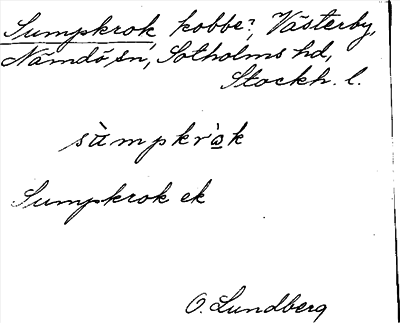 Sumpkrok kobbe?, Västerby,
Nämdö sn, Sotholms hd,
Stockh. l.
sùmpkròk
Sumpkrok ek
O. Lundberg